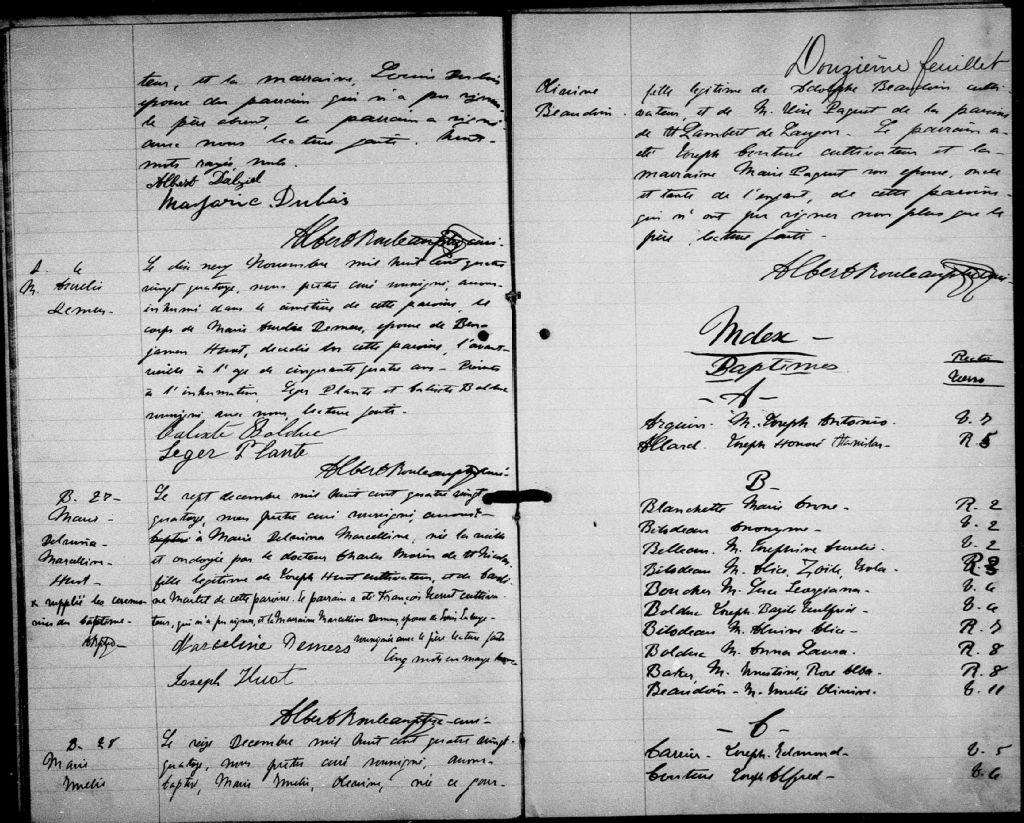 teur, et la marraine, Louise Dubois
épouse du parrain qui n'a pu signer
le père absent, le parrain a signé
avec nous lecture faite. Huit
mots rayés nuls.
Albert Dalziel
Marjorie Dubois
Albert Rouleau ptre curé.
S. 6
M. Aurelie
Demers-
Le dix neuf Novembre mil huit cent quatre
vingt quatorze, nous prêtre curé soussigné, avons
inhumé dans le cimetière de cette paroisse, le
corps de Marie Aurélie Demers, épouse de Ben-
jamin Huot, décédée en cette paroisse, l'avant-
veille à l'age de cinquante quatre ans- Présents
à l'inhumation. Leger Plante et Calixte Bolduc
soussignés avec nous, lecture faite.-
Calixte Bolduc
Leger Plante
Albert Rouleau ptre curé-
B. 27-
Marie-
Delvina-
Marcelline-
Huot-
x supplié les ceremo-
nies du baptême-
Le sept decembre mil huit cent quatre vingt
quatorze, nous prêtre curé soussigné, avons x
baptisé à Marie Delvina Marcelline, née la veille
et ondoyée par le docteur Charles Morin de St Nicolas,
fille legitime de Joseph Huot cultivateur, et de
Martel de cette paroisse. le parrain a été François cultiva-
teur, qui n'a pu signer, et la Marraine Marcelline Demers, épouse de Louis
soussignée avec le père lecture faite
Marceline Demers
Cinq mots en marge
Joseph Huot
Albert Rouleau ptre-curé-
B- 28
Marie
Emelie
Le seize Decembre mil huit cent quatre vingt-
quatorze, nous prêtre curé soussigné, avons-
baptisé, Marie Emelie, Olivine, née ce jour-
Douzième feuillet
Olivine
Beaudoin.
fille legitime de Adolphe Beaudoin culti-
vateur, et de M. Elise Paquet de la paroisse
de St Lambert de Lauzon. Le parrain a
été Joseph Couture cultivateur et la-
marraine Marie Paquet son épouse, oncle
et tante de l'enfant, de cette paroisse-
qui n'ont pu signer non plus que le
père, lecture faite-
Albert Rouleau ptre curé-
Index-
Baptêmes
Recto
Verso
-A-
Arguin. M. Joseph Antonio. V. 7
Allard. Joseph Honoré Stanislas- R. 5
B-
Blanchette Marie Anne- R. 2
Bilodeau Anonyme- V. 2
Belleau. M. Josephine Aurelie. V. 2
Bilodeau M. Alice, Zoïle, R. 3
Boucher M. Luce Georgiana- V. 6
Bolduc Joseph Basile V. 6
Bilodeau M. Alice- R. 7
Bolduc M. Anna Laura. R. 8
Baker, M. Ernestine, Rose Alba- R. 8
Beaudoin- M. Emelie Olivine. V. 11
-C-
Carrier- Joseph Edmond- V. 5
Couture Joseph Alfred- V. 6